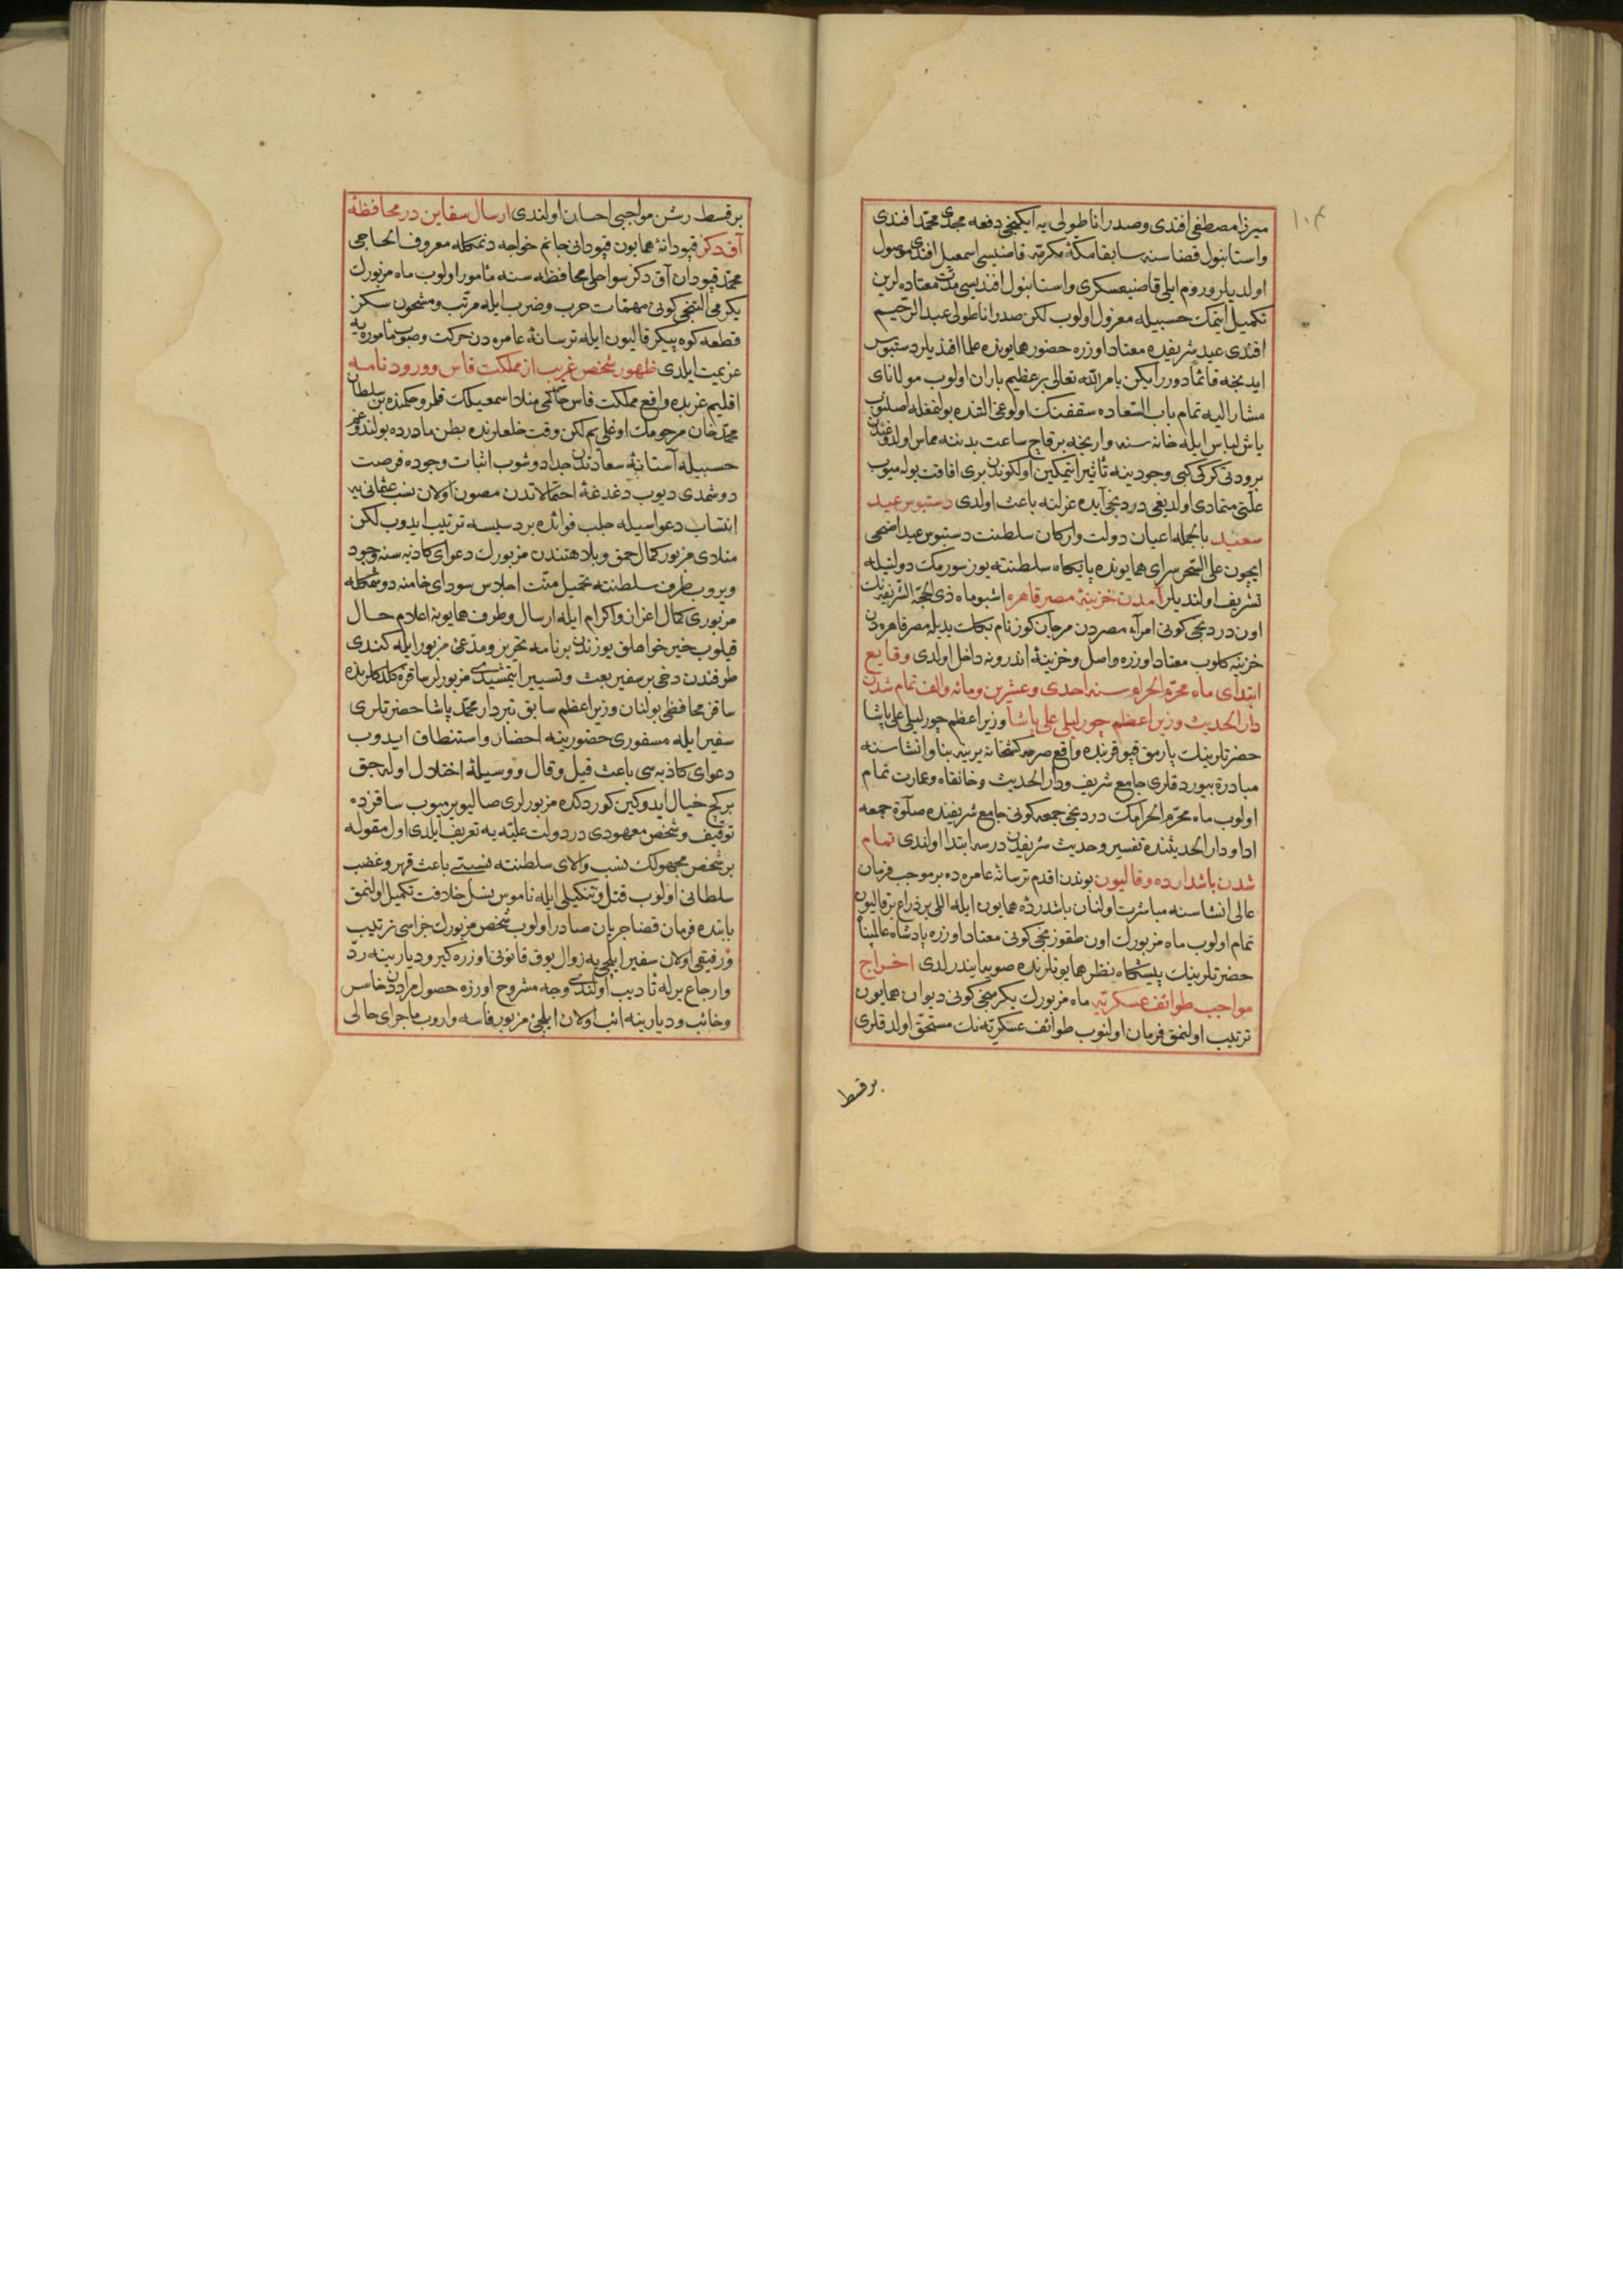 ١٠٤
ميرزا مصطفى افندى وصدر اناطولى يه ايكنجى دفعه مجدى محمد افندى
واستانبول قضاسنه سابقا مكهٔ مكرمه قاضيسى اسمعيل افندى موصول
اولديلر وروم ايلى قاضيعسكرى واستانبول افنديسى مدت معتاده لرين
تكميل ايتمك حسبيله معزول اولوب لكن صدر اناطولى عبد الرحيم
افندى عيد شريفده معتاد اوزره حضور همايونده علما افنديلر دستبوس
ايدنجه قائما دورر ايكن بامر الله تعالى بر عظيم باران اولوب مولاناى
مشار اليه تمام باب السعاده سقفنك اولوغى التنده بولنمغله اصلنوب
ياش لباس ايله خانه سنه وارنجه بر قاچ ساعت بدننه مماس اولدوغندن
برودتى كركى كبى وجودينه تأثير ايتمكين اولكوندن برى افاقت بوله ميوب
علتى متمادى اولديغى دردنجى آيده عزلنه باعث اولدى دستبوس عيد
سعيد بالجمله اعيان دولت واركان سلطنت دستبوس عيد اضحى
ايچون على السحر سراى همايونده پايكاه سلطنته يوز سورمك دولتيله
تشريف اولنديلر آمدن خزينهٔ مصر قاهره اشبو ماه ذى الحجة الشريفه نك
اون دردنجى كونى امرآء مصردن مرجان كوز نام بكك يديله مصر قاهره دن
خزينه كلوب معتاد اوزره واصل وخزينهٔ اندرونه داخل اولدى وقايع
ابتداى ماه محرم الحرام سنه احدى وعشرين ومائه والف تمام شدن
دار الحديث وزير اعظم چورليلى على پاشا وزير اعظم چورليلى على پاشا
حضرتلرينك پارمق قپو قربنده واقع صرمه كشخانه يرينه بنا وانشاسنه
مبادرة بيوردقلرى جامع شريف ودار الحديث وخانقاه وعمارت تمام
اولوب ماه محرم الحرامك دردنجى جمعه كونى جامع شريفنده صلوة جمعه
ادا ودار الحديثنده تفسير وحديث شريفدن درسه ابتدا اولندى تمام
شدن باشدارده وقاليون بوندن اقدم ترسانهٔ عامره ده بر موجب فرمان
عالى انشاسنه مباشرت اولنان باشدردهٔ همايون ايله اللى بر ذراع بر قاليون
تمام اولوب ماه مزبورك اون طقوزنجى كونى معتاد اوزره پادشاه عالمپناه
حضرتلرينك پيشكاه نظر همايونلرنده صويه ايندرلدى اخراج
مواجب طوائف عسكريه ماه مزبورك يكرمنجى كونى ديوان همايون
ترتيب اولنمق فرمان اولنوب طوائف عسكريه نك مستحق اولدقلرى
بر قسط
بر قسط رشن مواجبى احسان اولندى ارسال سفاين در محافظهٔ
آق دكز قپودانهٔ همايون قپودانى جانم خواجه دنمكله معروف الحاجى
محمد قپودان آق دكز سواحلى محافظه سنه مأمور اولوب ماه مزبورك
يكرمى التنجى كونى مهمات حرب وضرب ايله مرتب ومشحون سكز
قطعه كوه پيكر قاليون ايله ترسانهٔ عامره دن حركت وصوب مأموريه
عزيمت ايلدى ظهور شخص غريب از مملكت فاس وورود نامه
اقليم غربده واقع مملكت فاس حاكمى منلا اسمعيلك قلمرو حكمنده بن سلطان
محمد خان مرحومك اوغلى يم لكن وقت خلعلرنده بطن مادرده بولندوغم
حسبيله آستانهٔ سعادتدن جدا دوشوب اثبات وجوده فرصت
دوشمدى ديوب دغدغهٔ احتمالاتدن مصون اولان نسب عثمانى يه
انتساب دعواسيله جلب فوائده بر دسيسه ترتيب ايدوب لكن
منلاى مزبور كمال حمق وبلاهتندن مزبورك دعواى كاذبه سنه وجود
ويروب طرف سلطنته تحميل منت اجلاس سوداى خامنه دوشمكله
مزبورى كمال اعزاز واكرام ايله ارسال وطرف همايونه اعلام حال
قيلوب خير خواهلق يوزندن بر نامه تحرير ومدعئ مزبور ايله كندى
طرفندن دخى بر سفير بعث وتسيير ايتمشيدى مزبورلر ساقزه كلدكلرنده
ساقز محافظى بولنان وزير اعظم سابق تبردار محمد پاشا حضرتلرى
سفير ايله مسفورى حضورينه احضار واستنطاق ايدوب
دعواى كاذبه سى باعث قيل وقال ووسيلهٔ اختلال اوله جق
بر كج خيال ايدوكين كوردكده مزبورلرى صاليويرميوب ساقزده
توقيف وشخص معهودى در دولت عليه يه تعريف ايلدى اول مقوله
بر شخص مجهولك نسب والاى سلطنته نسبتى باعث قهر وغضب
سلطانى اولوب قتل وتنكيلى ايله ناموس نسل خلافت تكميل اولنمق
بابنده فرمان قضا جريان صادر اولوب شخص مزبورك جزاسى ترتيب
ورفيقى اولان سفير ايلچى يه زوال يوق قانونى اوزره كيرو ديارينه رد
وارجاع برله تأديب اولندى وجه مشروح اوزره حصول مراددن خاسر
وخائب وديارينه ائب اولان ايلچئ مزبور فاسه واروب ماجراى حالى